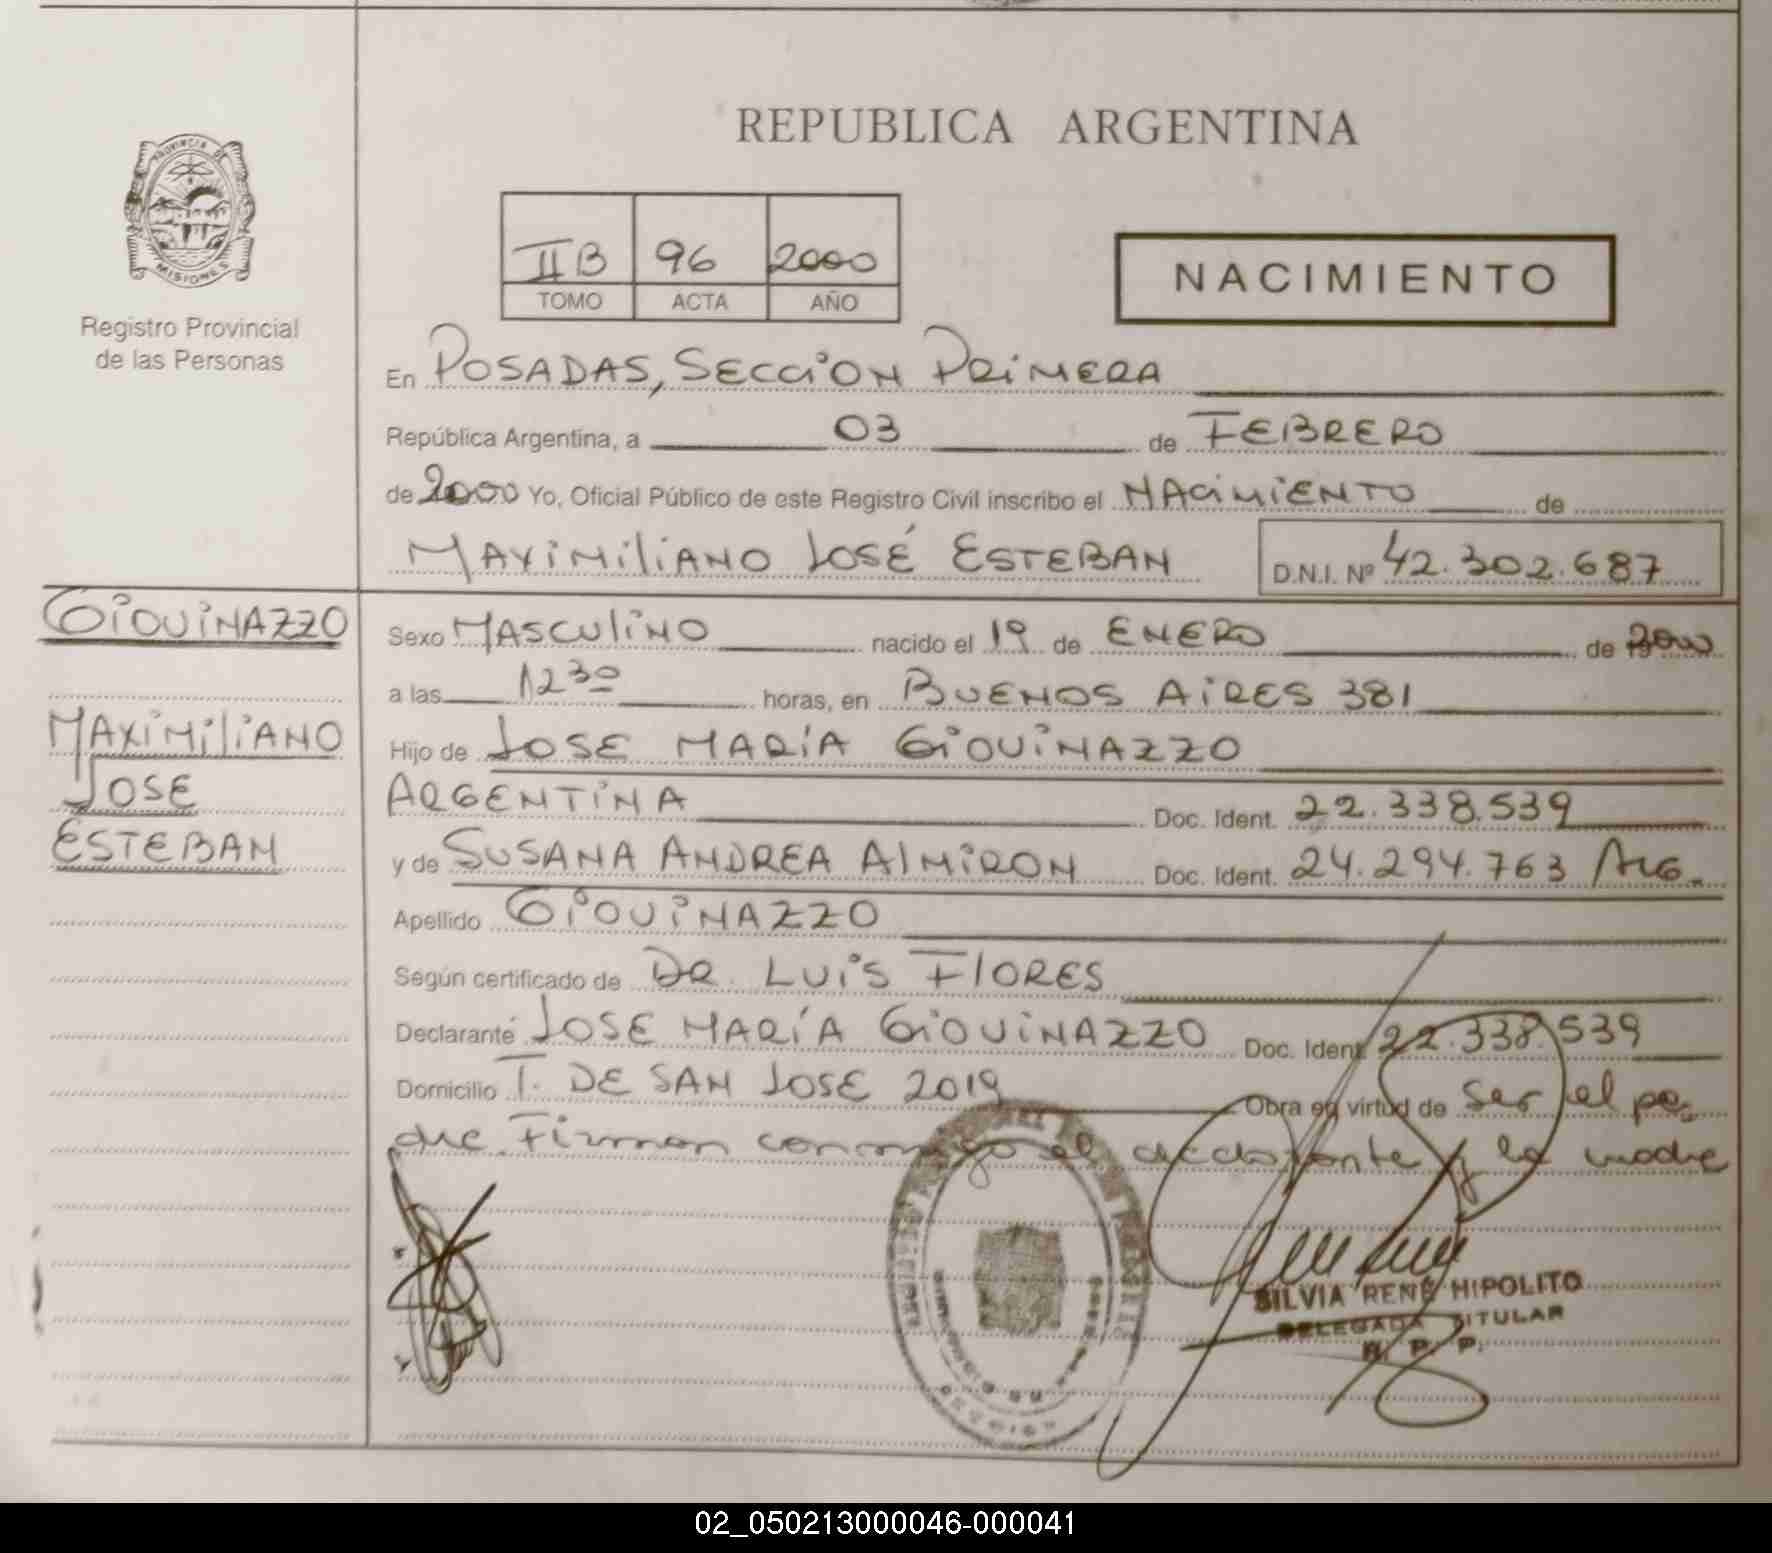 REPUBLICA ARGENTINA
PROVINCIA DE
MISIONES
Registro Provincial
de las Personas
IIB 96 2000
TOMO ACTA AÑO
NACIMIENTO
En POSADAS, SECCION PRIMERA
República Argentina, a 03 de FEBRERO
de 2000 Yo, Oficial Público de este Registro Civil inscribo el NACIMIENTO de
MAXIMILIANO JOSÉ ESTEBAN D.N.I. Nº 42.302.687
GIOVINAZZO
MAXIMILIANO
JOSE
ESTEBAN
Sexo MASCULINO nacido el 19 de ENERO de 2000
a las 12 30 horas, en BUENOS AIRES 381
Hijo de JOSE MARÍA GIOVINAZZO
ARGENTINA Doc. Ident. 22.338.539
y de SUSANA ANDREA ALMIRON Doc. Ident. 24.294.763 ARG.
Apellido GIOVINAZZO
Según certificado de DR. LUIS FLORES
Declarante JOSE MARÍA GIOVINAZZO Doc. Ident. 22.338.539
Domicilio T. DE SAN JOSE 2019 Obra en virtud de ser el pa-
dre. Firman conmigo el declarante y la madre
SILVIA RENÉ HIPOLITO
DELEGADA TITULAR
R. P. P.
02_050213000046-000041